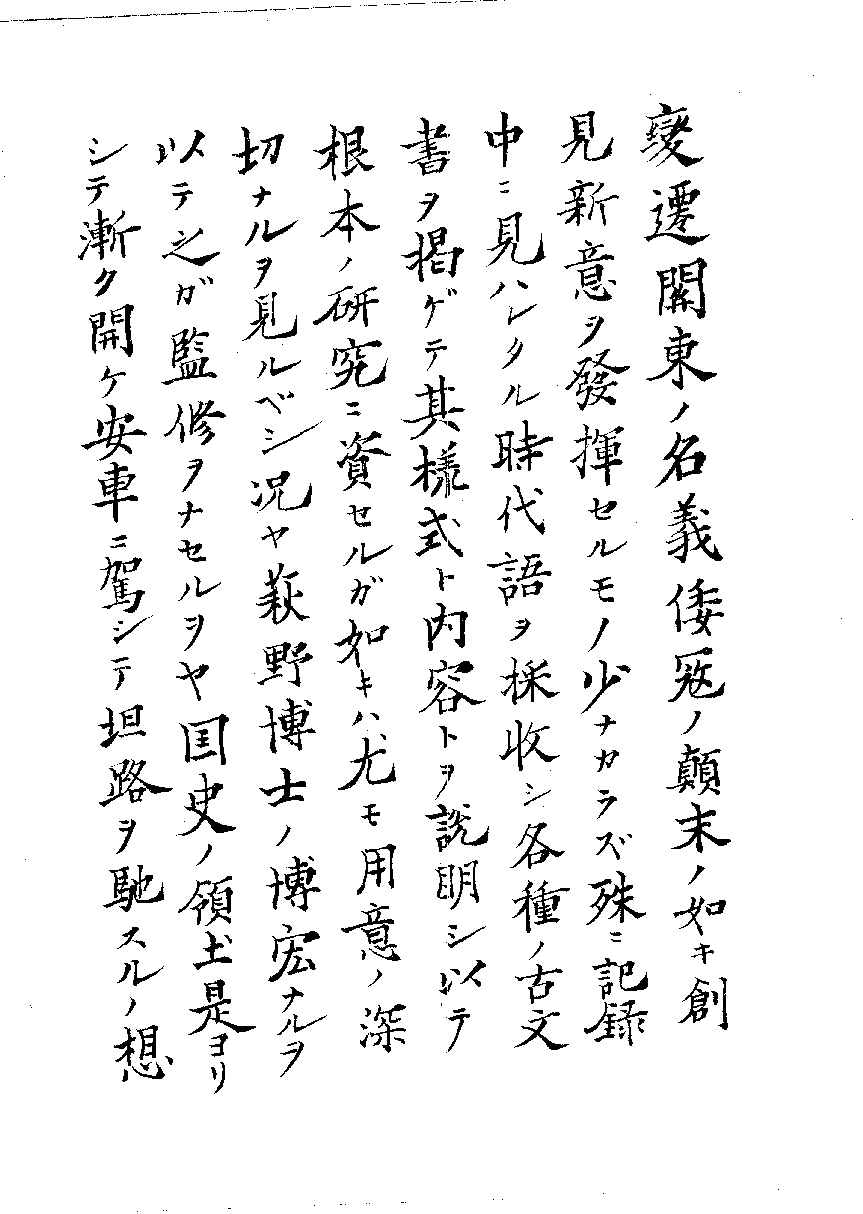 變遷關東ノ名義倭寇ノ顛末ノ如キ創
見新意ヲ發揮セルモノ少ナカラズ殊ニ記録
中ニ見ハレタル時代語ヲ採收シ各種ノ古文
書ヲ掲ゲテ其樣式ト内容トヲ説明シ以テ
根本ノ研究ニ資セルガ如キハ尤モ用意ノ深
切ナルヲ見ルベシ況ヤ萩野博士ノ博宏ナルヲ
以テ之ガ監修ヲナセルヲヤ国史ノ領土是ヨリ
シテ漸ク開ケ安車ニ駕シテ坦路ヲ馳スルノ想